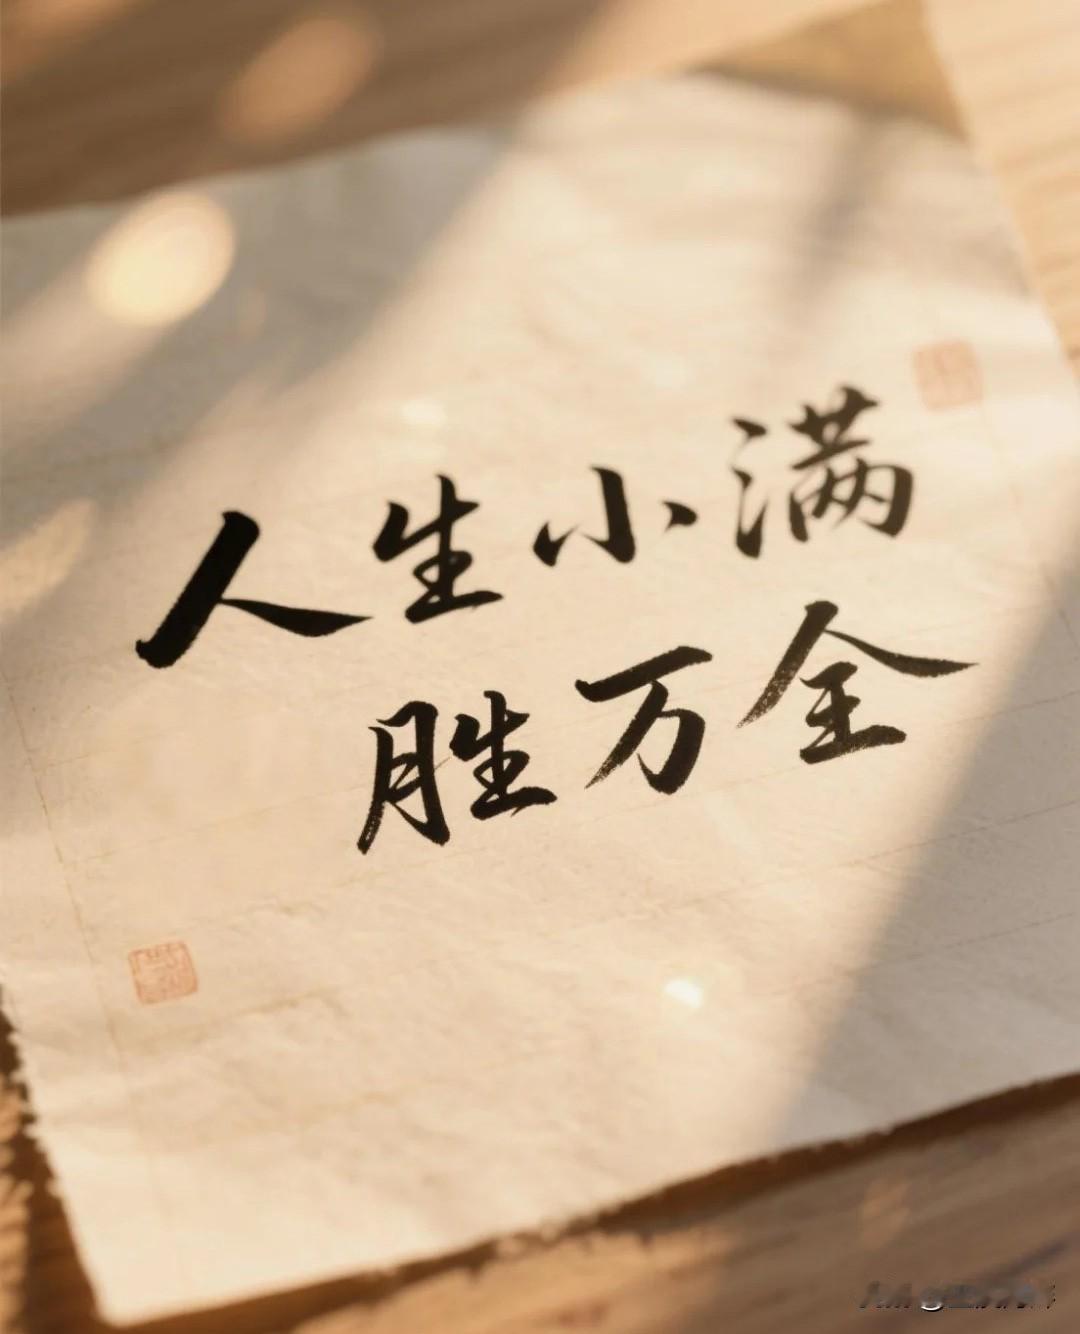 人生小满
胜万全